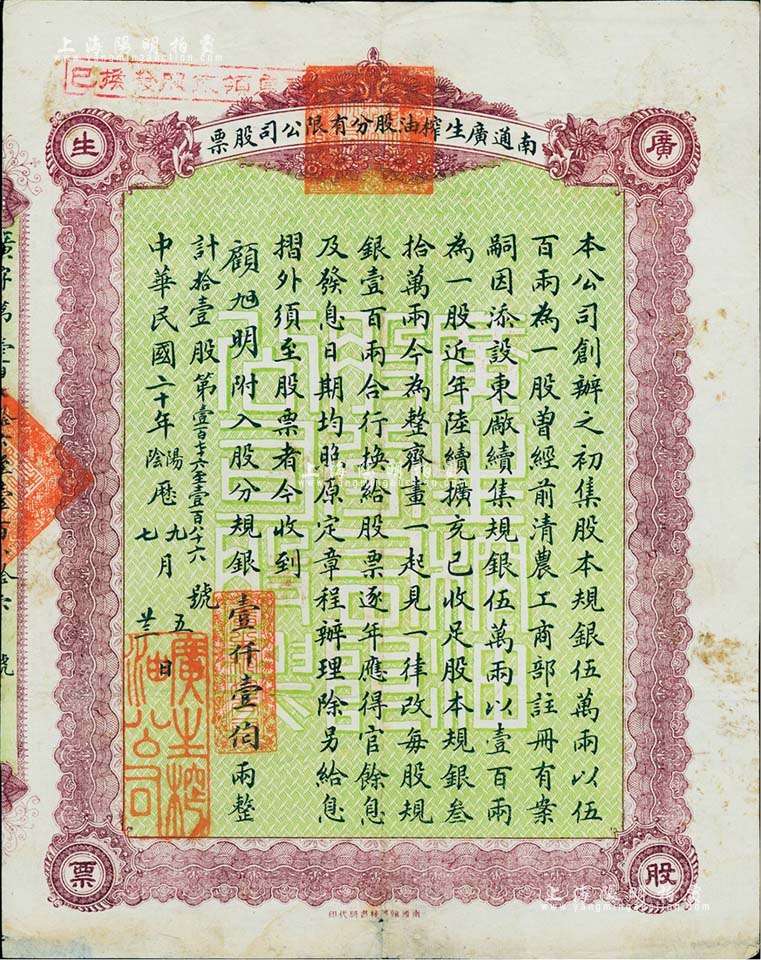 上海陽明拍賣
www.yangmingauction.com
南通廣生榨油股分有限公司股票
廣
生
本公司創辦之初集股本規銀伍萬兩以伍
百兩為一股曾經前清農工商部註冊有案
嗣因添設東廠續集規銀伍萬兩以壹百兩
為一股近年陸續擴充已收足股本規銀叁
拾萬兩今為整齊畫一起見一律改每股規
銀壹百兩合行換給股票逐年應得官餘息
及發息日期均照原定章程辦理除另給息
摺外須至股票者今收到
顧旭明附入股分規銀壹仟壹佰兩整
計拾壹股第壹百七十六至壹百八十六號
中華民國二十年陽曆九月五日
陰七廿三
廣生榨油公司
上海陽明拍賣
www.yangmingauction.com
股
票
南通翰墨林書局代印
上海陽明拍賣
www.yangmingauction.com